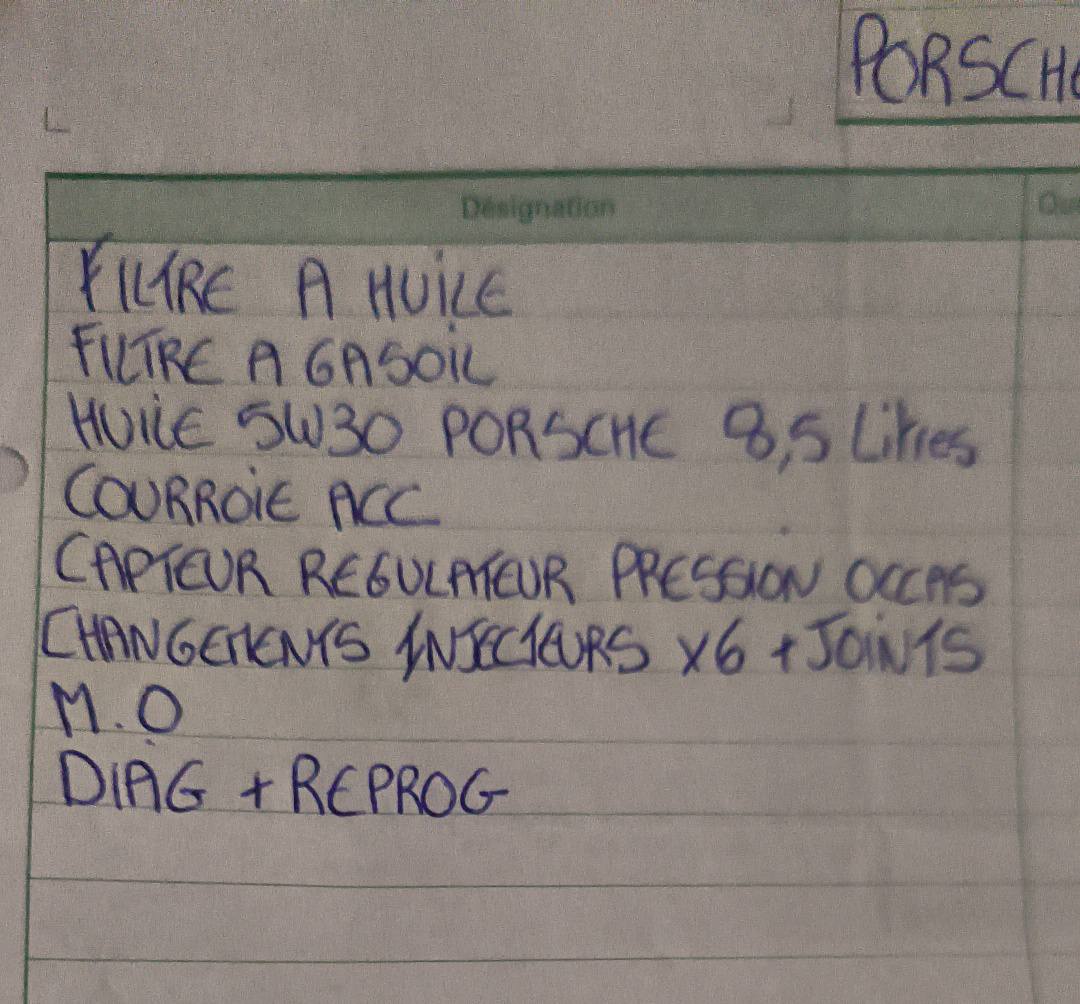 PORSCHE
Désignation
FILTRE A HUILE
FILTRE A GASOIL
HUILE 5W30 PORSCHE 8,5 Litres
COURROIE ACC
CAPTEUR REGULATEUR PRESSION OCCAS
CHANGEMENTS INJECTEURS x6 + JOINTS
M.O
DIAG + REPROG